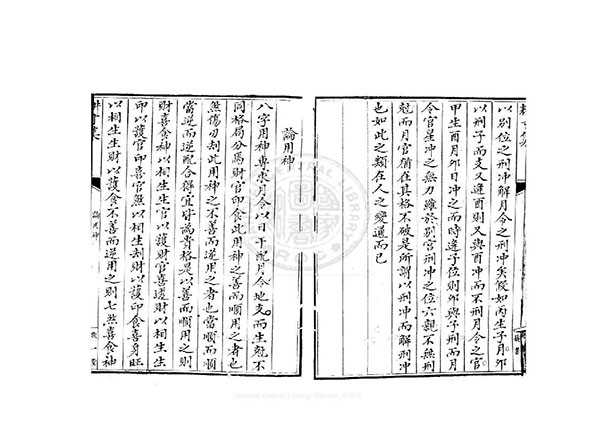 以別位之刑冲解月令之刑冲矣假如丙生子月夘
以刑子而支又逢酉則又與酉冲而不刑月令之官
甲生酉月夘日冲之而時逢子位則夘與子刑而月
令官星冲之無力雖於別宮刑冲之位六親不無刑
尅而月官猶在其格不破是所謂以刑冲而解刑冲
也如此之類在人之變通而已
論用神
八字用神專求月令以日干配月令地支而生尅不
同格局分焉財官印食此用神之善而順用之者也
煞傷刃刦此用神之不善而逆用之者也當順而順
當逆而逆配合得宜皆謂貴格是以善而順用之則
財喜食神以相生生官以護財官喜透財以相生生
印以護官印喜官煞以相生刦財以護印食喜身旺
以相生生財以護食不善而逆用之則七煞喜食神
論用神